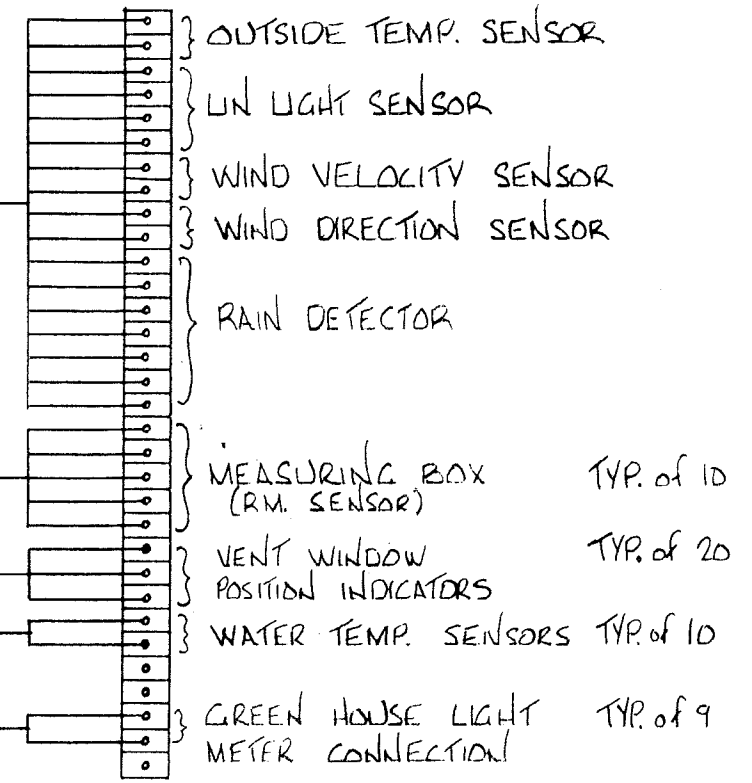 OUTSIDE TEMP. SENSOR
UN LIGHT SENSOR
WIND VELOCITY SENSOR
WIND DIRECTION SENSOR
RAIN DETECTOR
MEASURING BOX TYP. of 10
(RM. SENSOR)
VENT WINDOW TYP. of 20
POSITION INDICATORS
WATER TEMP. SENSORS TYP. of 10
GREEN HOUSE LIGHT TYP. of 9
METER CONNECTION